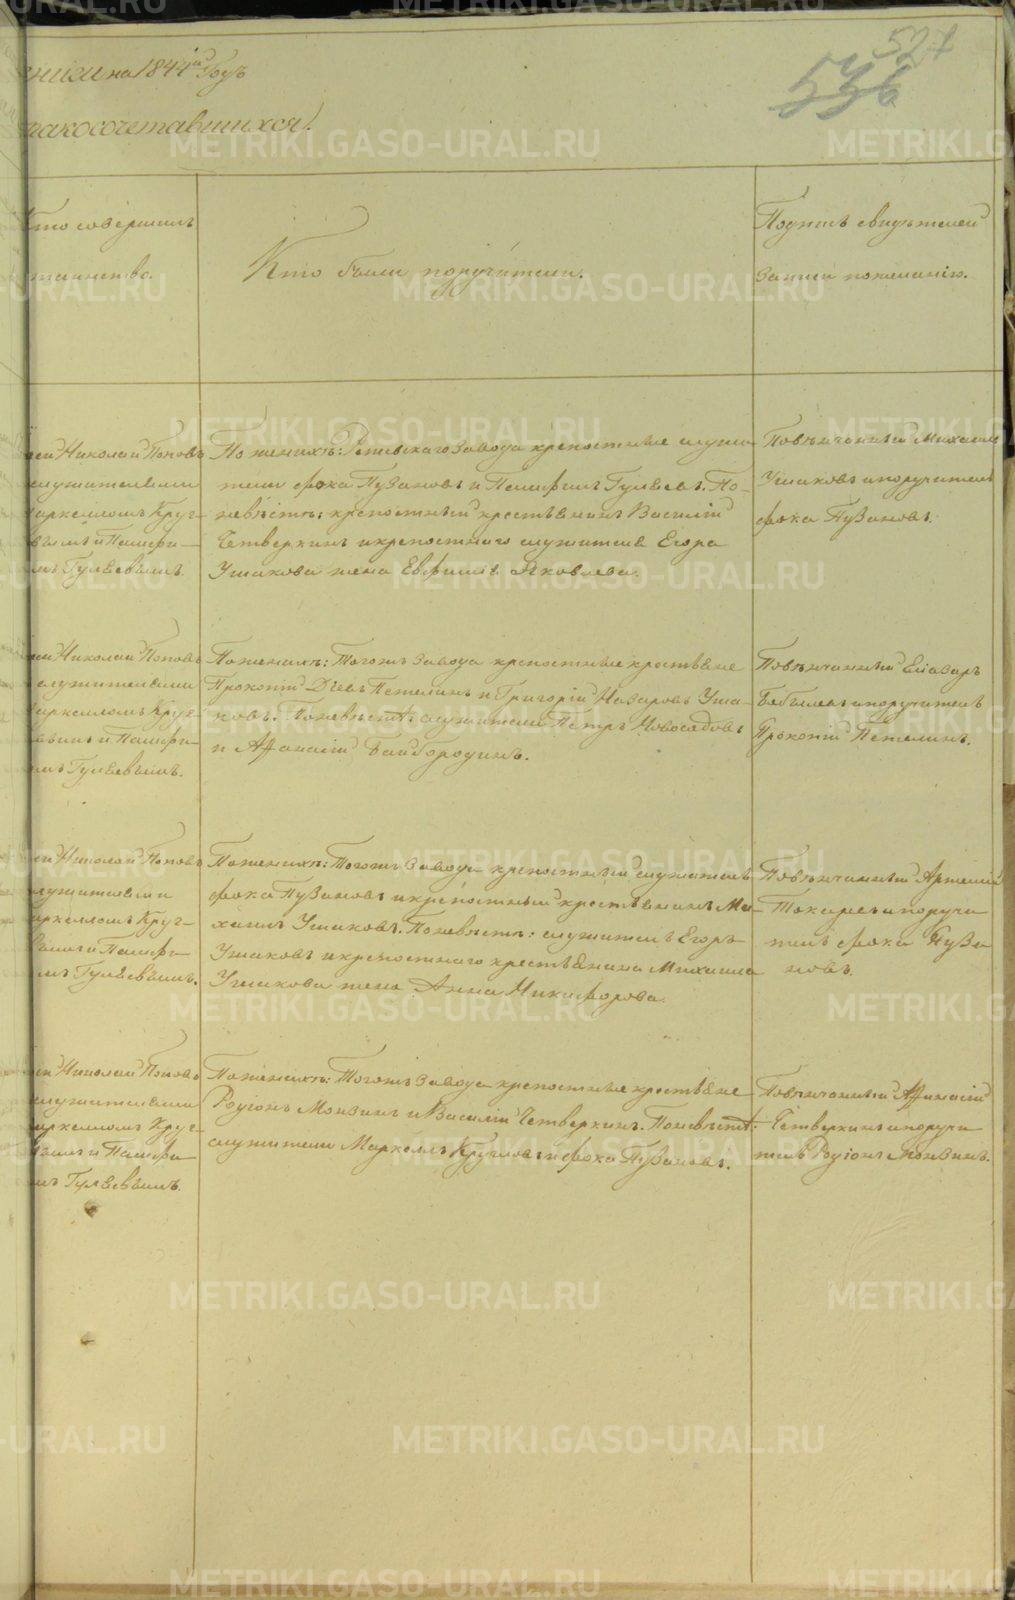 527
536
книги на 1844й Годъ
бракосочетавшихся.
Кто совершилъ
таинство.
Кто были поручители.
Подпись свидѣтелей
записи по желанію.
Николай Поповъ
служителями
Маркеломъ Круг-
и Памфи-
Гуляевымъ.
По женихѣ: Режевскаго завода крепостные служи
тели Фока Пузановъ и Памфилъ Гуляевъ. По-
невѣстѣ: крепостный крестьянинъ Василій
Четверкинъ и крепостного служителя Егора
Ушакова жена Евфимія Яковлева.
Повѣнчанный Михаилъ
Ушаковъ и поручитель
Фока Пузановъ.
Николай Поповъ
служителями
Маркеломъ Круг-
и Памфи-
Гуляевымъ.
По женихѣ: Тогожъ завода крепостные крестьяне
Прокопій Петелинъ и Григорій Назаровъ Уша-
ковъ. По невѣстѣ: служители Петръ Новосадовъ
и Афанасій Байбородинъ.
Повѣнчанный Елиазаръ
Бобылевъ и поручитель
Прокопій Петелинъ.
Николай Поповъ
служителями
Маркеломъ Круг-
и Памфи
Гуляевымъ.
По женихѣ: Тогожъ завода крепостный служитель
Фока Пузановъ и крепостный крестьянинъ Ми-
хаилъ Ушаковъ. По невѣстѣ: служитель Егоръ
Ушаковъ и крепостного крестьянина Михаила
Ушакова жена Анна Никифорова.
Повѣнчанный Артемій
Токаревъ и поручи
тель Фока Пуза
новъ.
Николай Поповъ
служителями
Маркеломъ Круг-
и Памфи
Гуляевымъ.
По женихѣ: Тогожъ завода крепостные крестьяне
Родіонъ Монзинъ и Василій Четверкинъ. По невѣстѣ:
служители Маркелъ Кругловъ и Фока Пузановъ.
Повѣнчанный Афанасій
Четверкинъ и поручи
тель Родіонъ Монзинъ.
METRIKI.GASO-URAL.RU